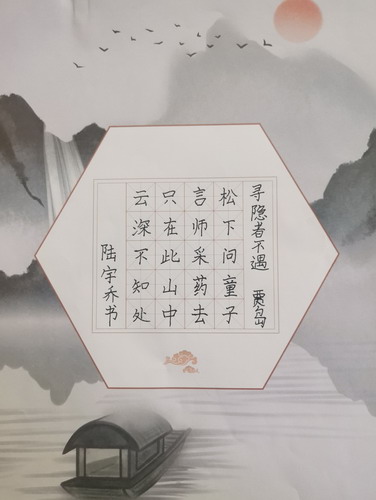 寻隐者不遇 贾岛
松下问童子
言师采药去
只在此山中
云深不知处
陆宇乔书